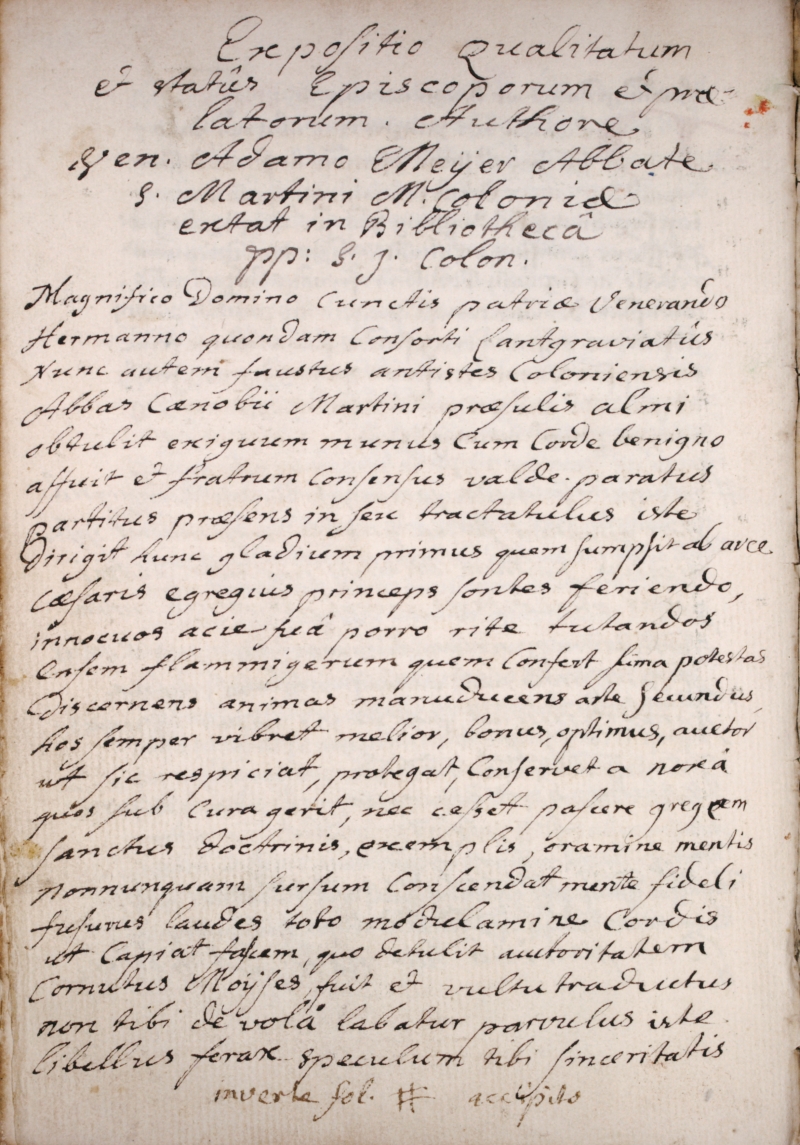 Expositio Qualitatum
& statûs Episcoporum & præ-
latorum. Authore
Ven. Adamo Meijer Abbate
S. Martini M. Coloniæ
extat in Bibliothecâ
pp: S. J. Colon.
Magnifico Domino Cunctis patriæ Venerando
Hermanno quondam Consorti Lantgraviatûs
Nunc autem faustus antistes Coloniensis
Abbas Cænobii Martini præsulis almi
obtulit exiguum munus Cum Corde benigno
affuit & fratrum Consensus valde paratus
partitus præsens in seu tractatulus iste
Dirigit hunc gladium primus quem sumpsit ab arce
Cæsaris egregius princeps sontes feriendo,
innocuos acie suâ porro rite tutandos
Ensem flammigerum quem Confert sima potestas
Discernens animas manuducens arte secundus,
hos semper vibret melior, bonus, optimus, auctor
ut sic respiciat, protegat, Conservet a noxâ
quos sub Cura gerit, nec cesset pascere gregem
sanctus doctrinis, exemplis, oramine mentis
nonnunquam sursum Conscendat mente fideli
fusurus laudes toto modulamine Cordis
ut Capiat facem, quo detulit auctoritatem
Cornutus Moijses, fuit & vultu traductus
non tibi de volâ labatur parvulus iste
libellus ferax speculum tibi sinceritatis
inverte fol. # accipito